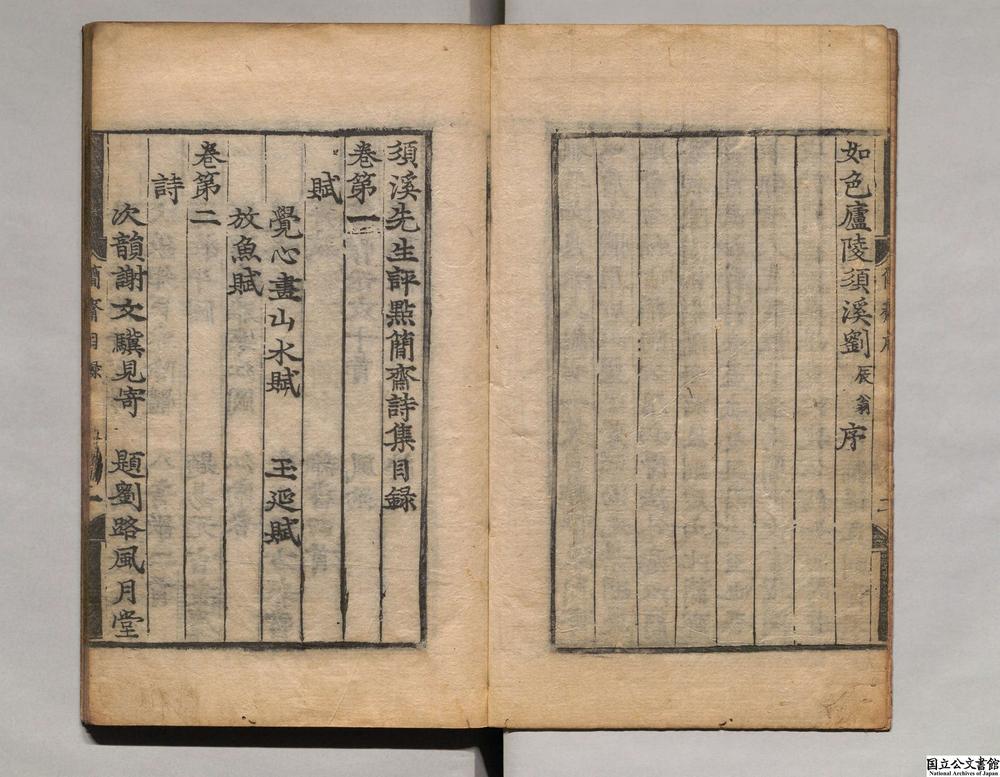 如色廬陵須溪劉辰翁序
須溪先生評點簡齋詩集目録
卷第一
賦
覺心畫山水賦　玉延賦
放魚賦
卷第二
詩
次韻謝文驥見寄　題劉路風月堂
簡齋目録
国立公文書館
National Archives of Japan